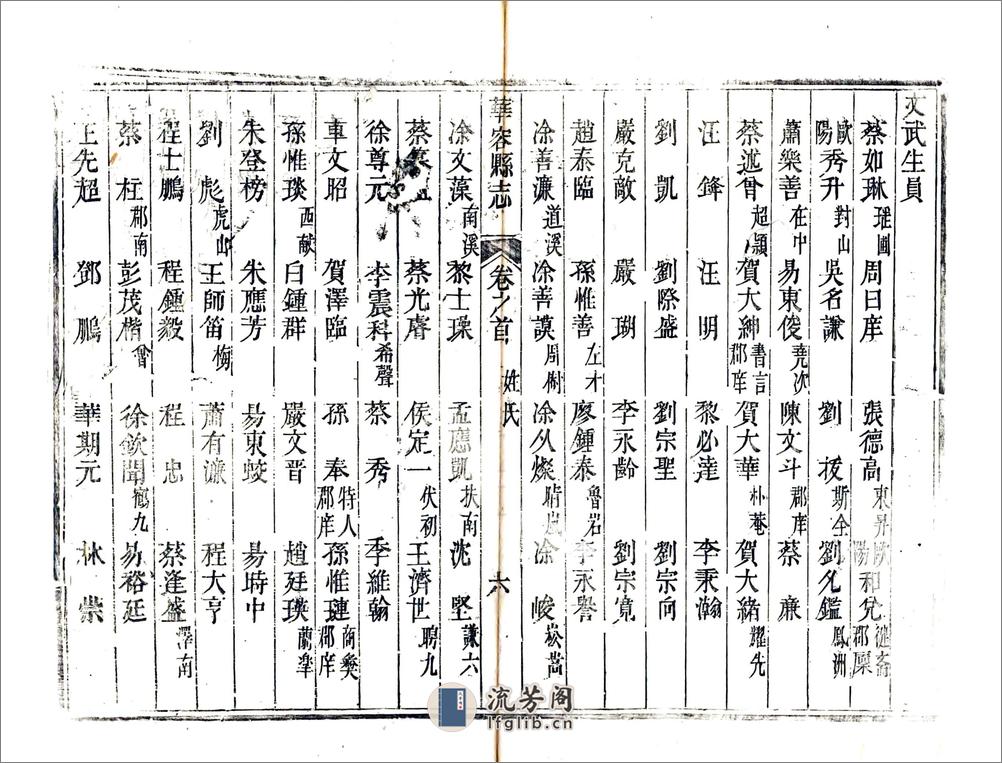 文武生員
蔡如琳 璀圃 周日庠 張德高 東昇 歐陽和兌 郡廩
歐陽秀升 對山 吳名謙 劉扳 斯全 劉允鑑 鳳洲
蕭樂善 在中 易東俊 堯次 陳文斗 郡庠 蔡廉
蔡述曾 超顯 賀大紳 書言 郡庠 賀大華 朴菴 賀大緒 耀先
汪鋒 汪明 黎必達 李秉瀚
劉凱 劉際盛 劉宗聖 劉宗向
嚴克敵 嚴瑚 李永齡 劉宗寬
趙泰臨 孫惟善 左才 廖鍾泰 魯岩 李永譽
涂善濂 道溪 涂善謨 周樹 涂从燦 晴嵐 涂峻 崧嵩
華容縣志 卷之首 姓氏 六
涂文藻 南溪 黎士璪 孟應凱 扶南 沈堅 謙六
蔡 蔡光膺 侯定一 伏初 王濟世 聘九
徐尊元 李震科 希聲 蔡秀 季維翰
車文昭 賀澤臨 孫奉 特人 郡庠 孫惟璉 商奠 郡庠
孫惟琰 西献 白鍾群 嚴文晋 趙廷瑛 蘭皋
朱登榜 朱應芳 易東蛟 易時中
劉彪 虎山 王師笛 梅 蕭有濂 程大亨
程士鵬 程鍾毅 程忠 蔡逢盛 澤南
蔡柱 郡南 彭茂楷 會 徐欽聞 九 易裕廷
王先超 鄧鵬 華期元 林崇
流芳阁
lfglib.cn